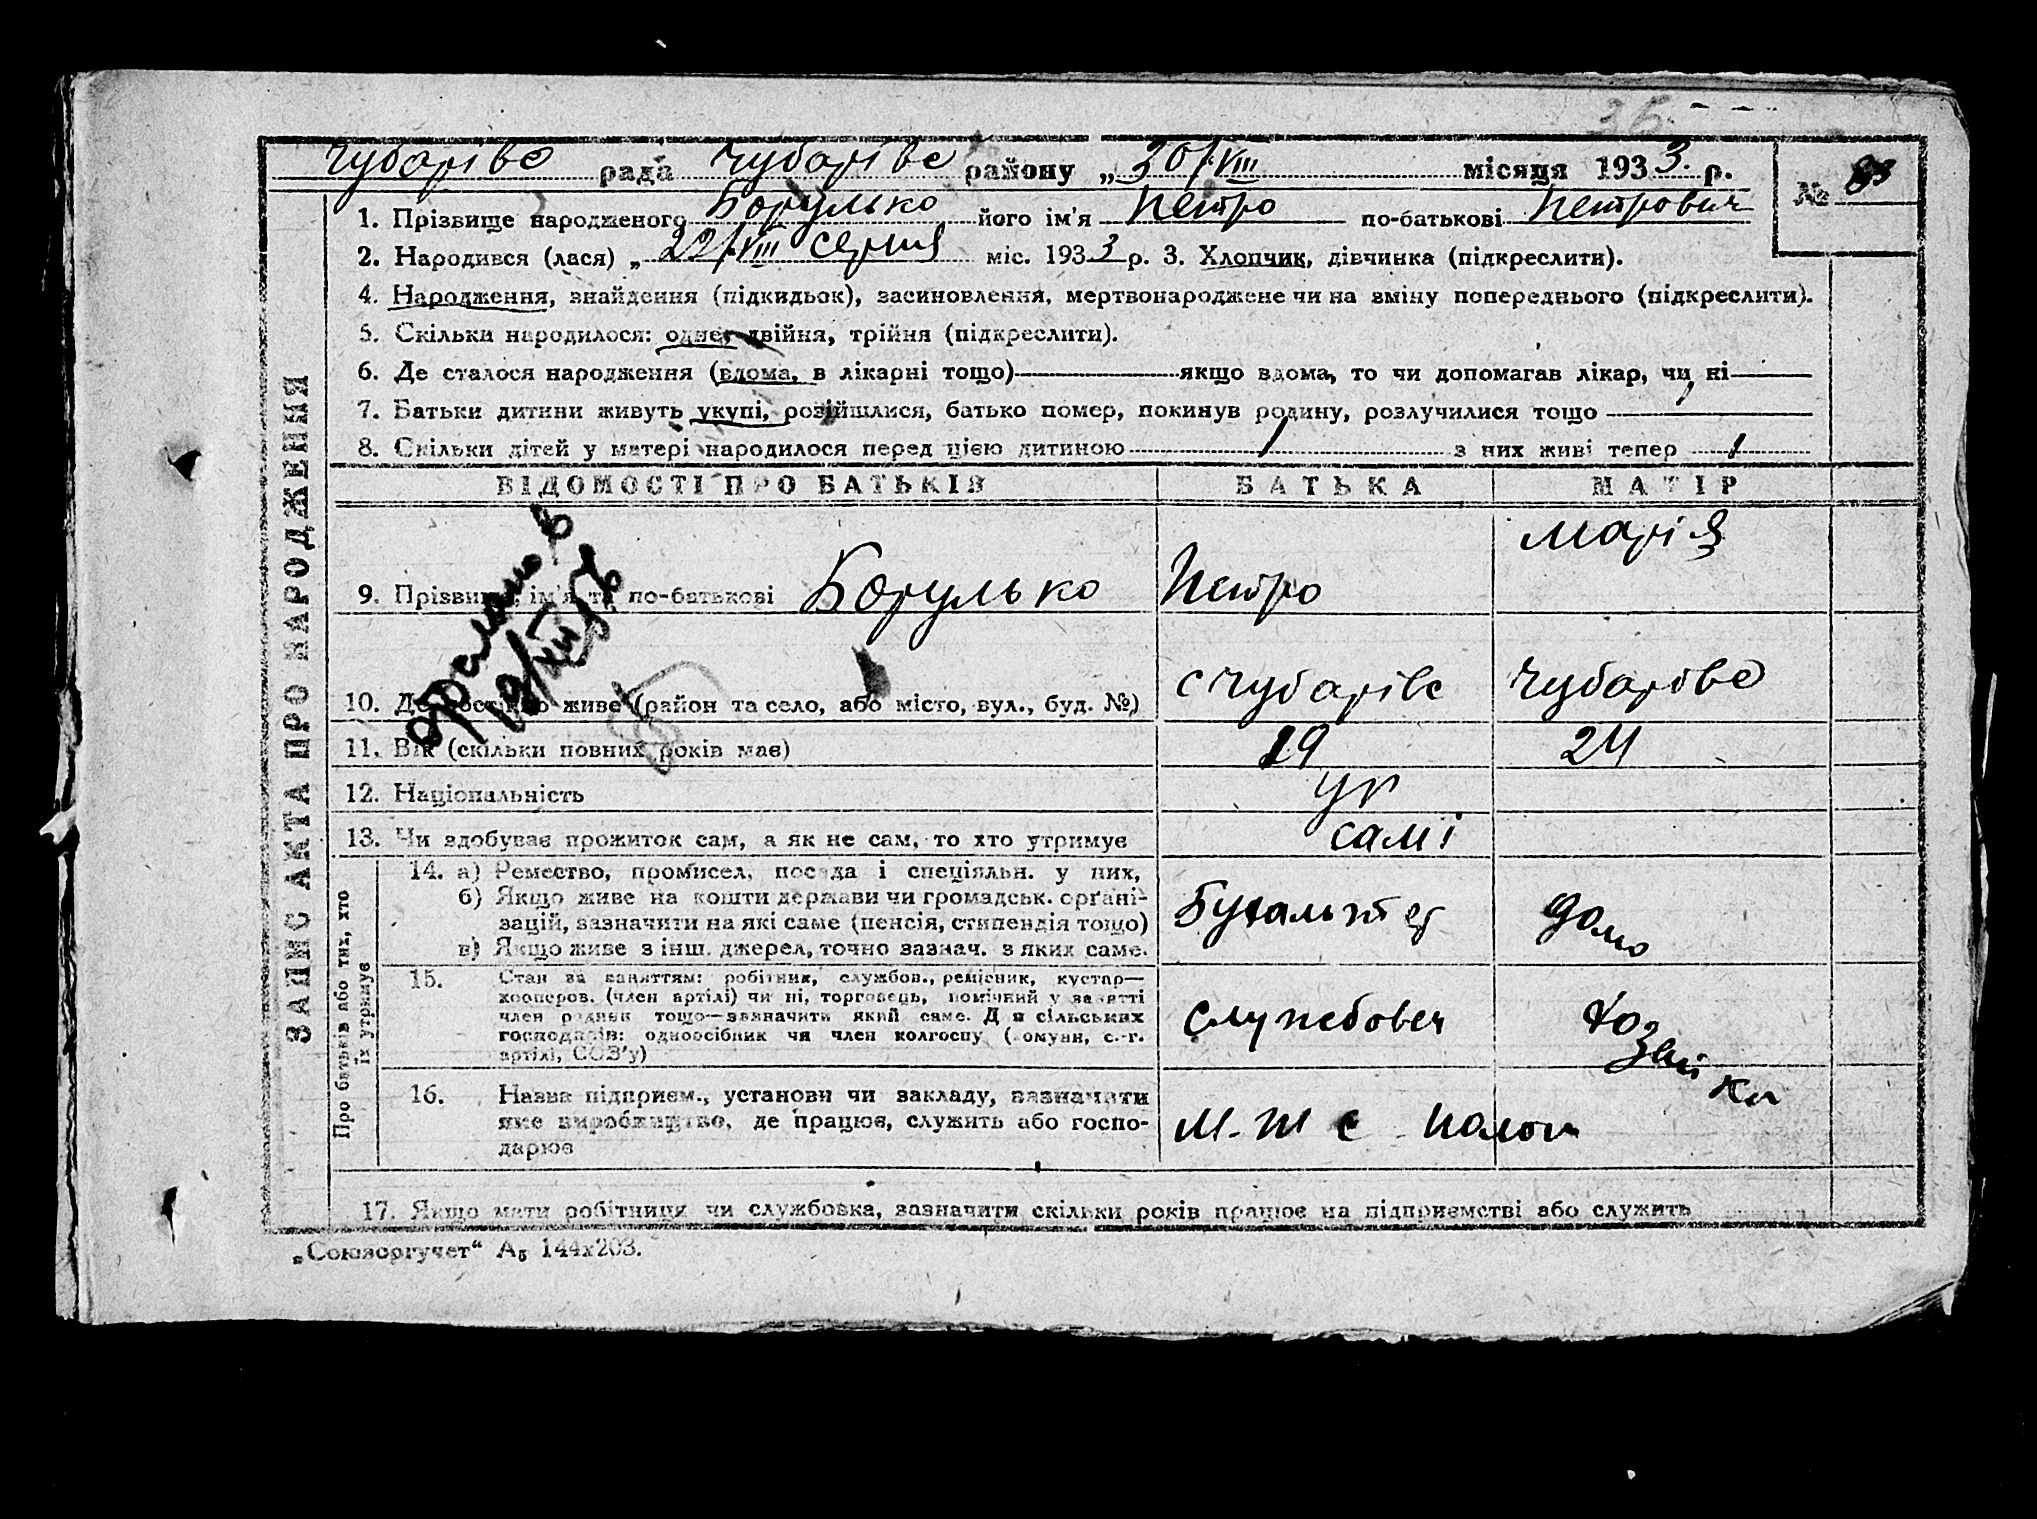 36
Чубарівс рада Чубарівс району „30/VIII місяця 1933 р. № 83
1. Прізвище народженого Борулько його ім'я Петро по-батькові Петрович
2. Народився (лася) „22/VIII серпня міс. 1933 р. 3. Хлопчик, дівчинка (підкреслити).
4. Народження, знайдення (підкидьок), засиновлення, мертвонароджене чи на зміну попереднього (підкреслити).
5. Скільки народилося: одне, двійня, трійня (підкреслити).
6. Де сталося народження (вдома, в лікарні тощо) якщо вдома, то чи допомагав лікар, чи ні
7. Батьки дитини живуть укупі, розійшлися, батько помер, покинув родину, розлучилися тощо
8. Скільки дітей у матері народилося перед цією дитиною 1 з них живі тепер 1
ЗАПИС АКТА ПРО НАРОДЖЕННЯ
ВІДОМОСТІ ПРО БАТЬКІВ БАТЬКА МАТІР
9. Прізвище, ім'я та по-батькові Борулько Петро Марія
10. Де постійно живе (район та село, або місто, вул., буд. №) с Чубарівс Чубарівс
11. Вік (скільки повних років має) 29 24
12. Національність ур
13. Чи здобуває прожиток сам, а як не сам, то хто утримує самі
Про батьків або тих, хто
їх утримує
14. а) Ремество, промисел, посада і спеціяльн. у них,
б) Якщо живе на кошти держави чи громадськ. орґані-
зацій, зазначити на які саме (пенсія, стипендія тощо)
в) Якщо живе з інш. джерел, точно зазнач. з яких саме.
Бугальтер домо
15. Стан за заняттям: робітник, службов., ремісник, кустар—
кооперов. (член артілі) чи ні, торговець, помічний у занятті
член родини тощо—зазначити який саме. Для сільських
господарів: одноосібник чи член колгоспу (комуни, с.-г.
артілі, СОЗ'у)
Служебовеч хо
зяй
ка
16. Назва підприєм., установи чи закладу, зазначити
яке виробництво, де працює, служить або госпо-
дарює
М-Т с Полог
17. Якщо мати робітниця чи службовка, зазначити скільки років працює на підприємстві або служить
„Союзоргучет“ А5 144х203.